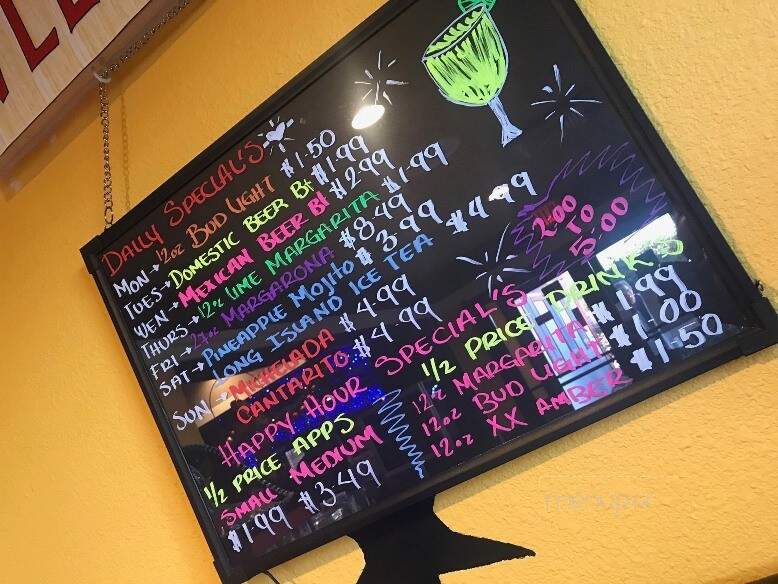 DAILY SPECIAL'S
MON → 12oz BUD LIGHT $1.50
TUES → DOMESTIC BEER Bt $1.99
WEN → MEXICAN BEER Bt $2.99
THURS → 12oz LIME MARGARITA $1.99
FRI → 27oz MARGARONA $8.49
SAT → PINEAPPLE MOJITO $3.99
LONG ISLAND ICE TEA $4.99
SUN → MICHELADA $4.99
CANTARITO $4.99
HAPPY HOUR SPECIAL'S
2:00
TO
5:00
1/2 PRICE APPS
SMALL MEDIUM
$1.99 $3.49
1/2 PRICE DRINK'S
12oz MARGARITA $1.99
12oz BUD LIGHT $1.00
12oz XX AMBER $1.50